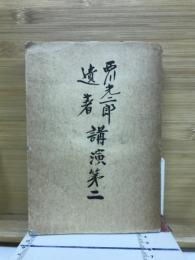 西川光二郎
遺著 講演第二